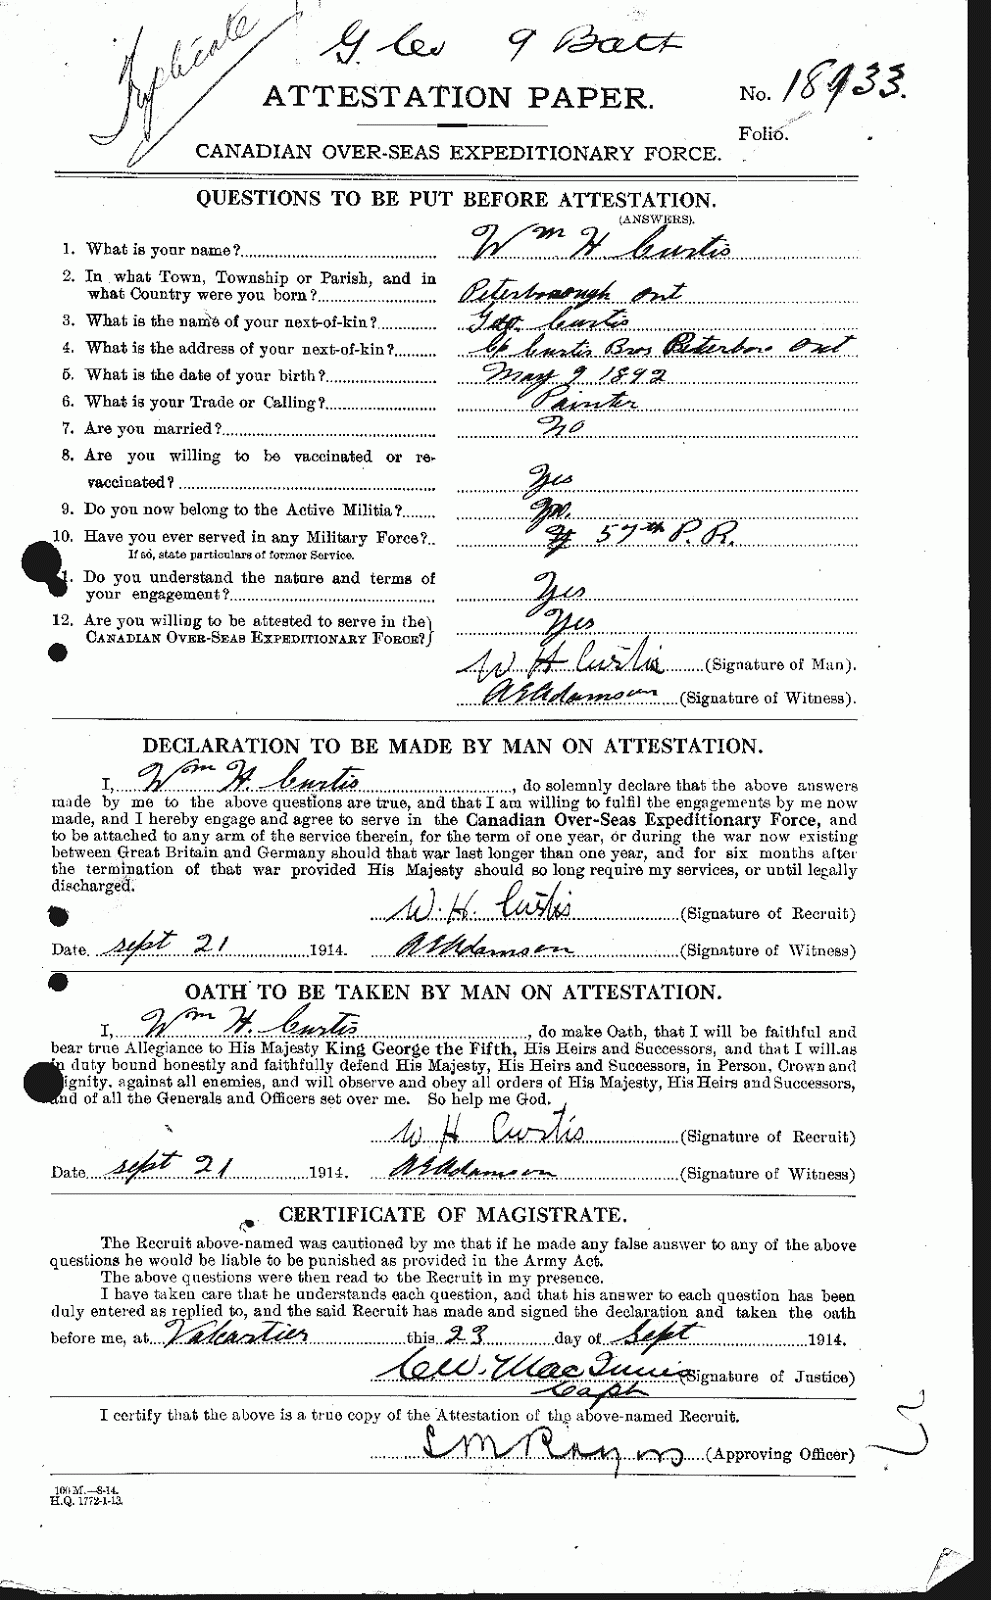 Triplicate
G Coy 9 Batt
ATTESTATION PAPER.
No. 18933.
Folio.
CANADIAN OVER-SEAS EXPEDITIONARY FORCE.
QUESTIONS TO BE PUT BEFORE ATTESTATION.
(ANSWERS).
1. What is your name? Wm H Curtis
2. In what Town, Township or Parish, and in
what Country were you born? Peterborough Ont
3. What is the name of your next-of-kin? Geo. Curtis
4. What is the address of your next-of-kin? Curtis Bros Peterboro Ont
5. What is the date of your birth? May 9 1892
6. What is your Trade or Calling? Painter
7. Are you married? No
8. Are you willing to be vaccinated or re-
vaccinated? Yes
9. Do you now belong to the Active Militia?
10. Have you ever served in any Military Force? 57th P.R.
If so, state particulars of former Service.
11. Do you understand the nature and terms of
your engagement? Yes
12. Are you willing to be attested to serve in the
CANADIAN OVER-SEAS EXPEDITIONARY FORCE? Yes
W H Curtis (Signature of Man).
A E Adamson (Signature of Witness).
DECLARATION TO BE MADE BY MAN ON ATTESTATION.
I, Wm H. Curtis, do solemnly declare that the above answers
made by me to the above questions are true, and that I am willing to fulfil the engagements by me now
made, and I hereby engage and agree to serve in the Canadian Over-Seas Expeditionary Force, and
to be attached to any arm of the service therein, for the term of one year, or during the war now existing
between Great Britain and Germany should that war last longer than one year, and for six months after
the termination of that war provided His Majesty should so long require my services, or until legally
discharged.
W. H. Curtis (Signature of Recruit)
Date. Sept 21 1914. A E Adamson (Signature of Witness)
OATH TO BE TAKEN BY MAN ON ATTESTATION.
I, Wm H. Curtis, do make Oath, that I will be faithful and
bear true Allegiance to His Majesty King George the Fifth, His Heirs and Successors, and that I will as
in duty bound honestly and faithfully defend His Majesty, His Heirs and Successors, in Person, Crown and
ignity, against all enemies, and will observe and obey all orders of His Majesty, His Heirs and Successors,
and of all the Generals and Officers set over me. So help me God.
W H Curtis (Signature of Recruit)
Date Sept 21 1914. A E Adamson (Signature of Witness)
CERTIFICATE OF MAGISTRATE.
The Recruit above-named was cautioned by me that if he made any false answer to any of the above
questions he would be liable to be punished as provided in the Army Act.
The above questions were then read to the Recruit in my presence.
I have taken care that he understands each question, and that his answer to each question has been
duly entered as replied to, and the said Recruit has made and signed the declaration and taken the oath
before me, at Valcartier this 23 day of Sept 1914.
C W. MacInnis (Signature of Justice)
Capt
I certify that the above is a true copy of the Attestation of the above-named Recruit.
(Approving Officer)
100 M.—8-14.
H.Q. 1772-1-13.